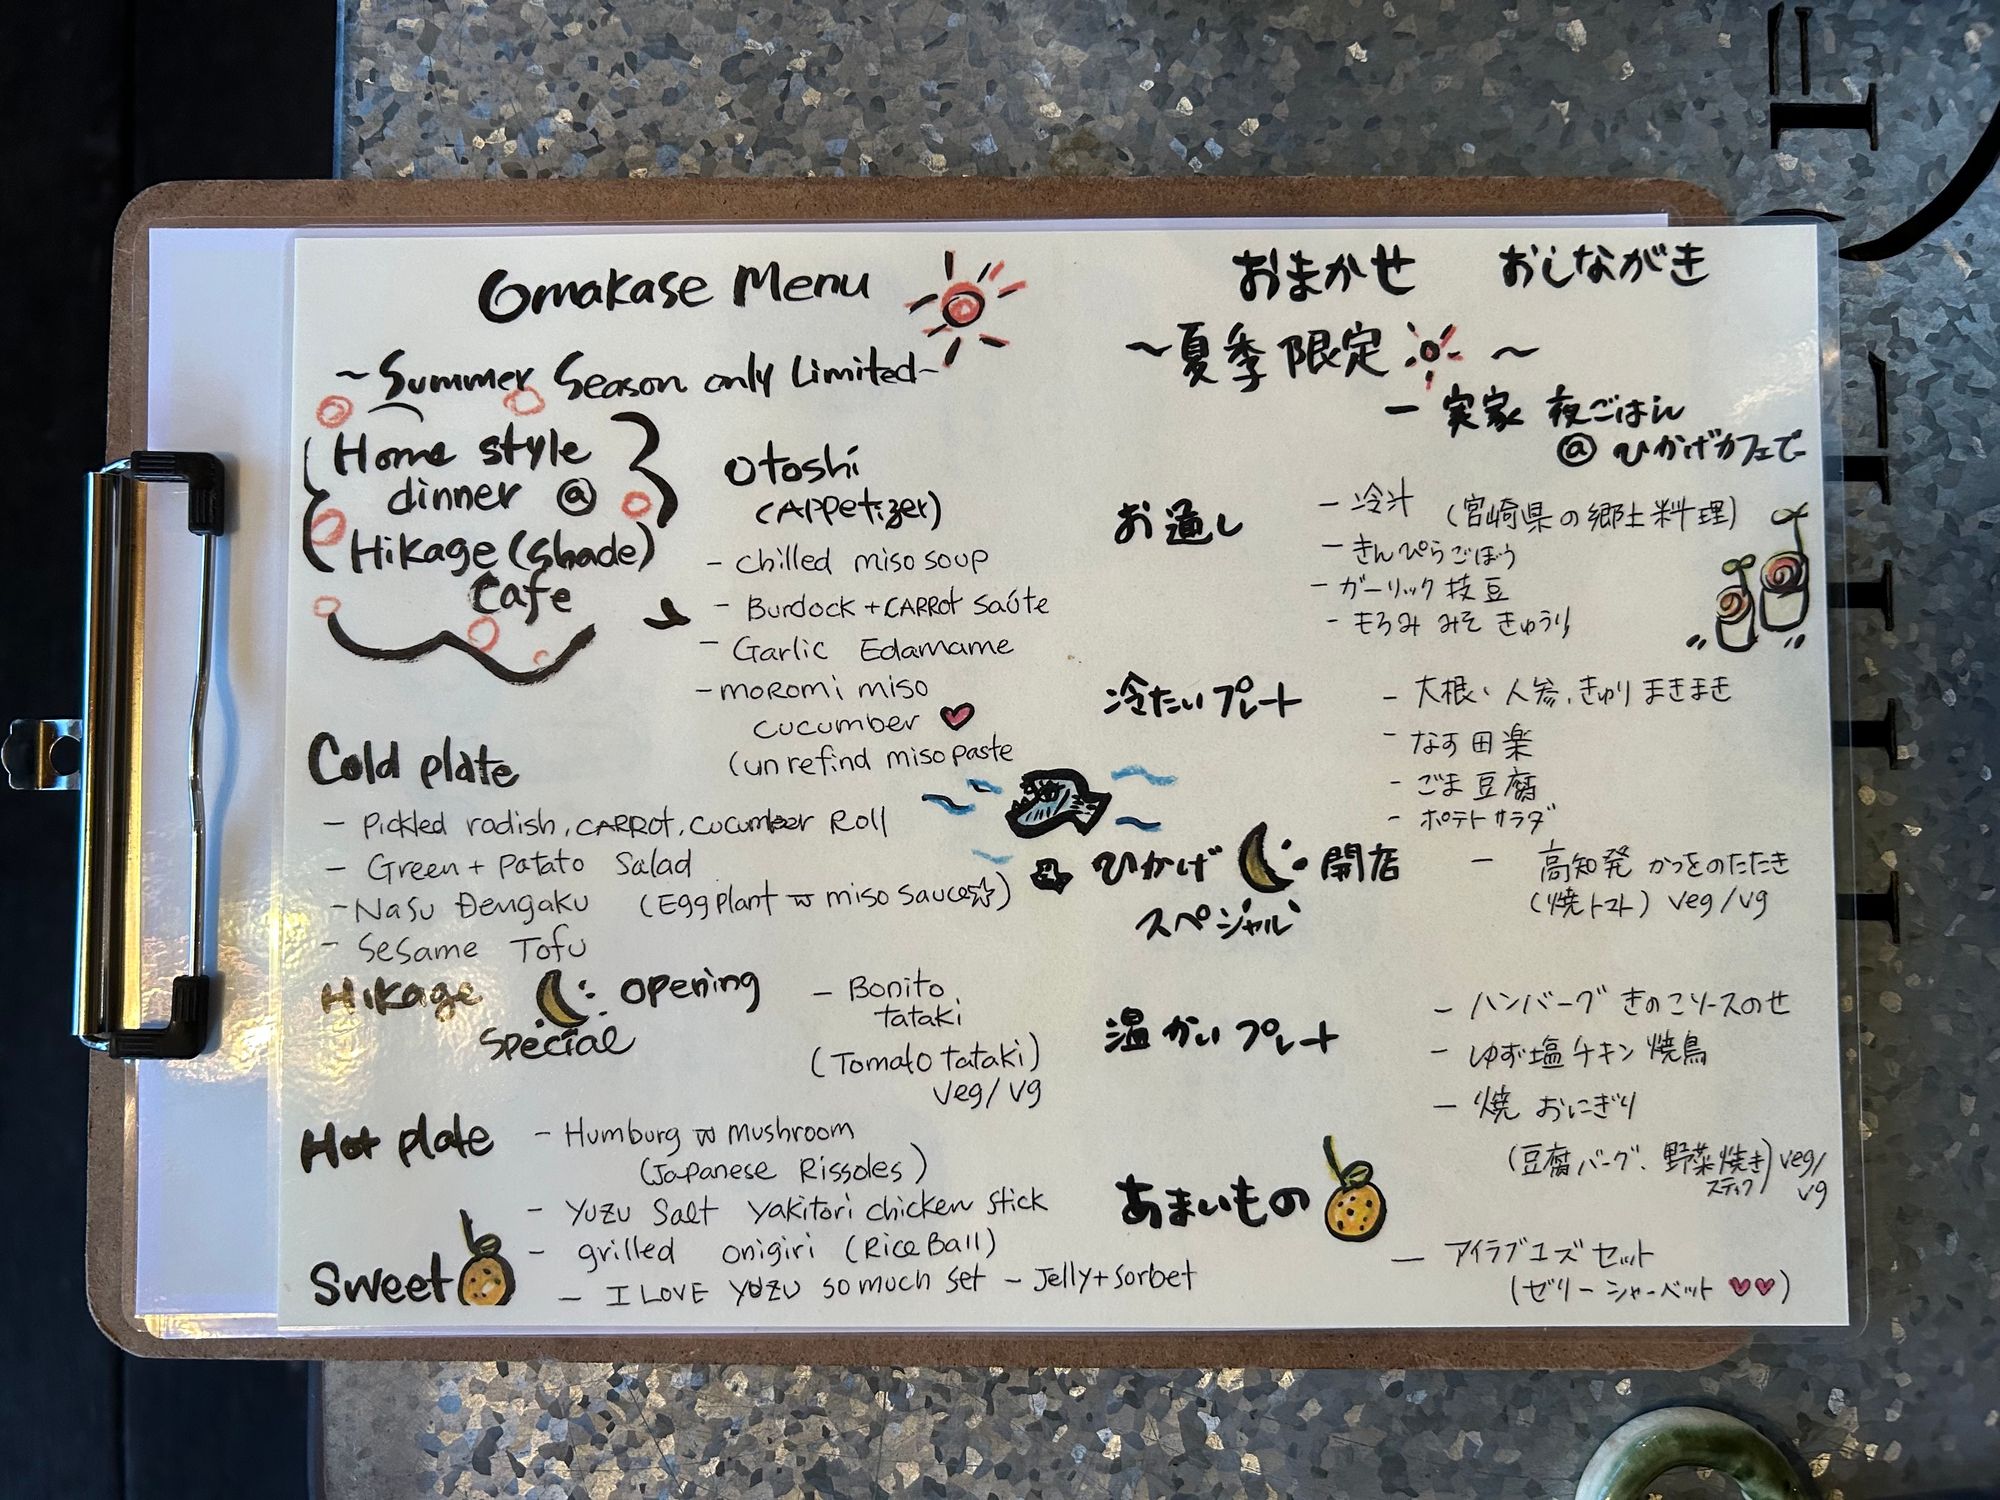 Omakase Menu
~Summer Season only Limited~
Home style
dinner @
Hikage (Shade)
Cafe
Otoshi
(Appetizer)
- Chilled miso soup
- Burdock + CARROT saúte
- Garlic Edamame
- moromi miso
cucumber
(unrefind miso paste
Cold plate
- Pickled radish, CARROT, cucumber Roll
- Green + Patato Salad
- Nasu Dengaku (Egg plant w miso sauce☆)
- Sesame Tofu
Hikage opening
Special
- Bonito
tataki
(Tomato tataki)
veg/vg
Hot plate
- Humburg w mushroom
(Japanese Rissoles)
- Yuzu Salt yakitori chicken stick
- grilled onigiri (Rice Ball)
Sweet
- I LOVE YUZU so much set - Jelly + sorbet
おまかせ おしながき
~夏季限定~
ー 実家 夜ごはん
@ ひかげカフェでー
お通し
- 冷汁 (宮崎県の郷土料理)
- きんぴらごぼう
- ガーリック枝豆
- もろみ みそ きゅうり
冷たいプレート
- 大根、人参、きゅり まきまき
- なす田楽
- ごま豆腐
- ポテトサラダ
ひかげ 開店
スペシャル
- 高知発 かつをのたたき
(焼トマト) veg/vg
温かいプレート
- ハンバーグ きのこソースのせ
- ゆず塩チキン焼鳥
- 焼 おにぎり
(豆腐バーグ、野菜焼き) veg/
スティック vg
あまいもの
- アイラブユズセット
(ゼリー シャーベット ♥♥)